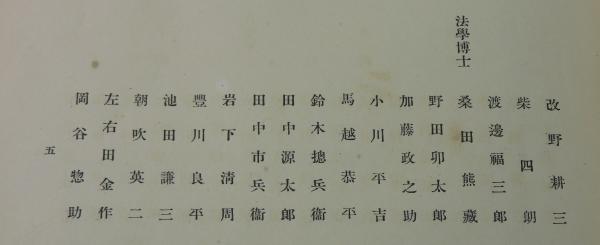 改野耕三
柴四朗
渡邊福三郎
法學博士 桑田熊藏
野田卯太郎
加藤政之助
小川平吉
馬越恭平
鈴木摠兵衞
田中源太郎
田中市兵衞
岩下淸周
豐川良平
池田謙三
朝吹英二
左右田金作
岡谷惣助
五